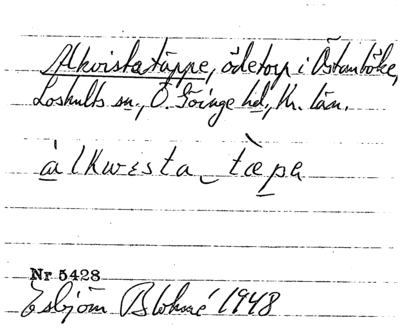 Alkvistatäppe, ödetorp i Östanböke,
Loshults sn., Ö. Göinge hd, Kr. län.
àlkwɛsta_tæpa
Nr 5428
Esbjörn Blohmé 1948